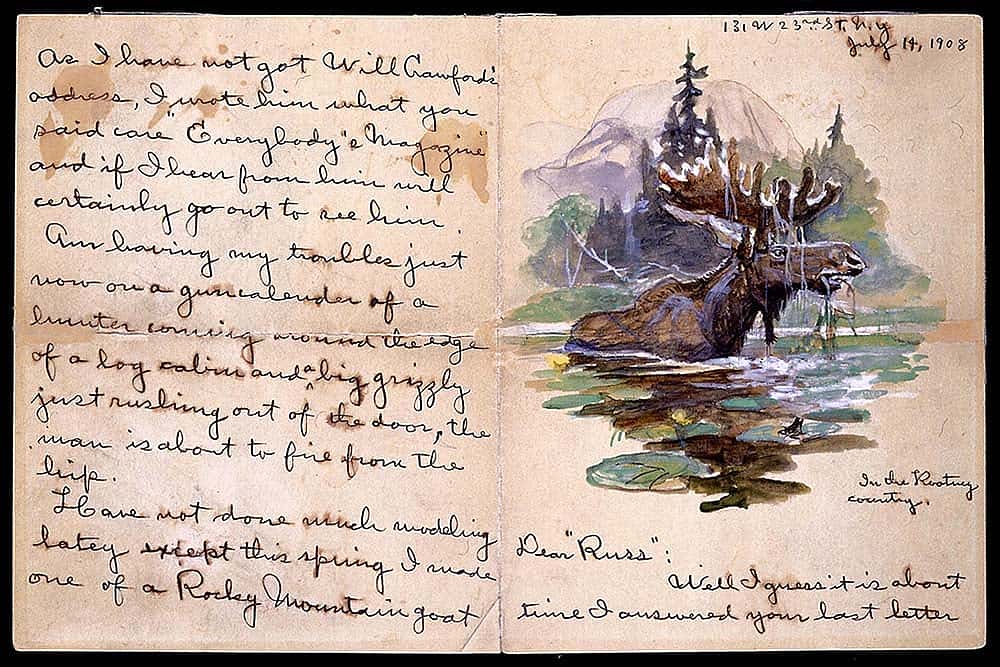 As I have not got Will Crawford's
address, I wrote him what you
said care "Everybody's Magazine"
and if I hear from him will
certainly go out to see him.
Am having my troubles just
now on a gun calender of a
hunter coming around the edge
of a log cabin and a big grizzly
just rushing out of the door, the
man is about to fire from the
hip.
Have not done much modeling
latey except this spring I made
one of a Rocky Mountain goat
131 W 23rd St. N.Y.
July 14, 1908
In the Kootney
country.
Dear "Russ":
Well I guess it is about
time I answered your last letter